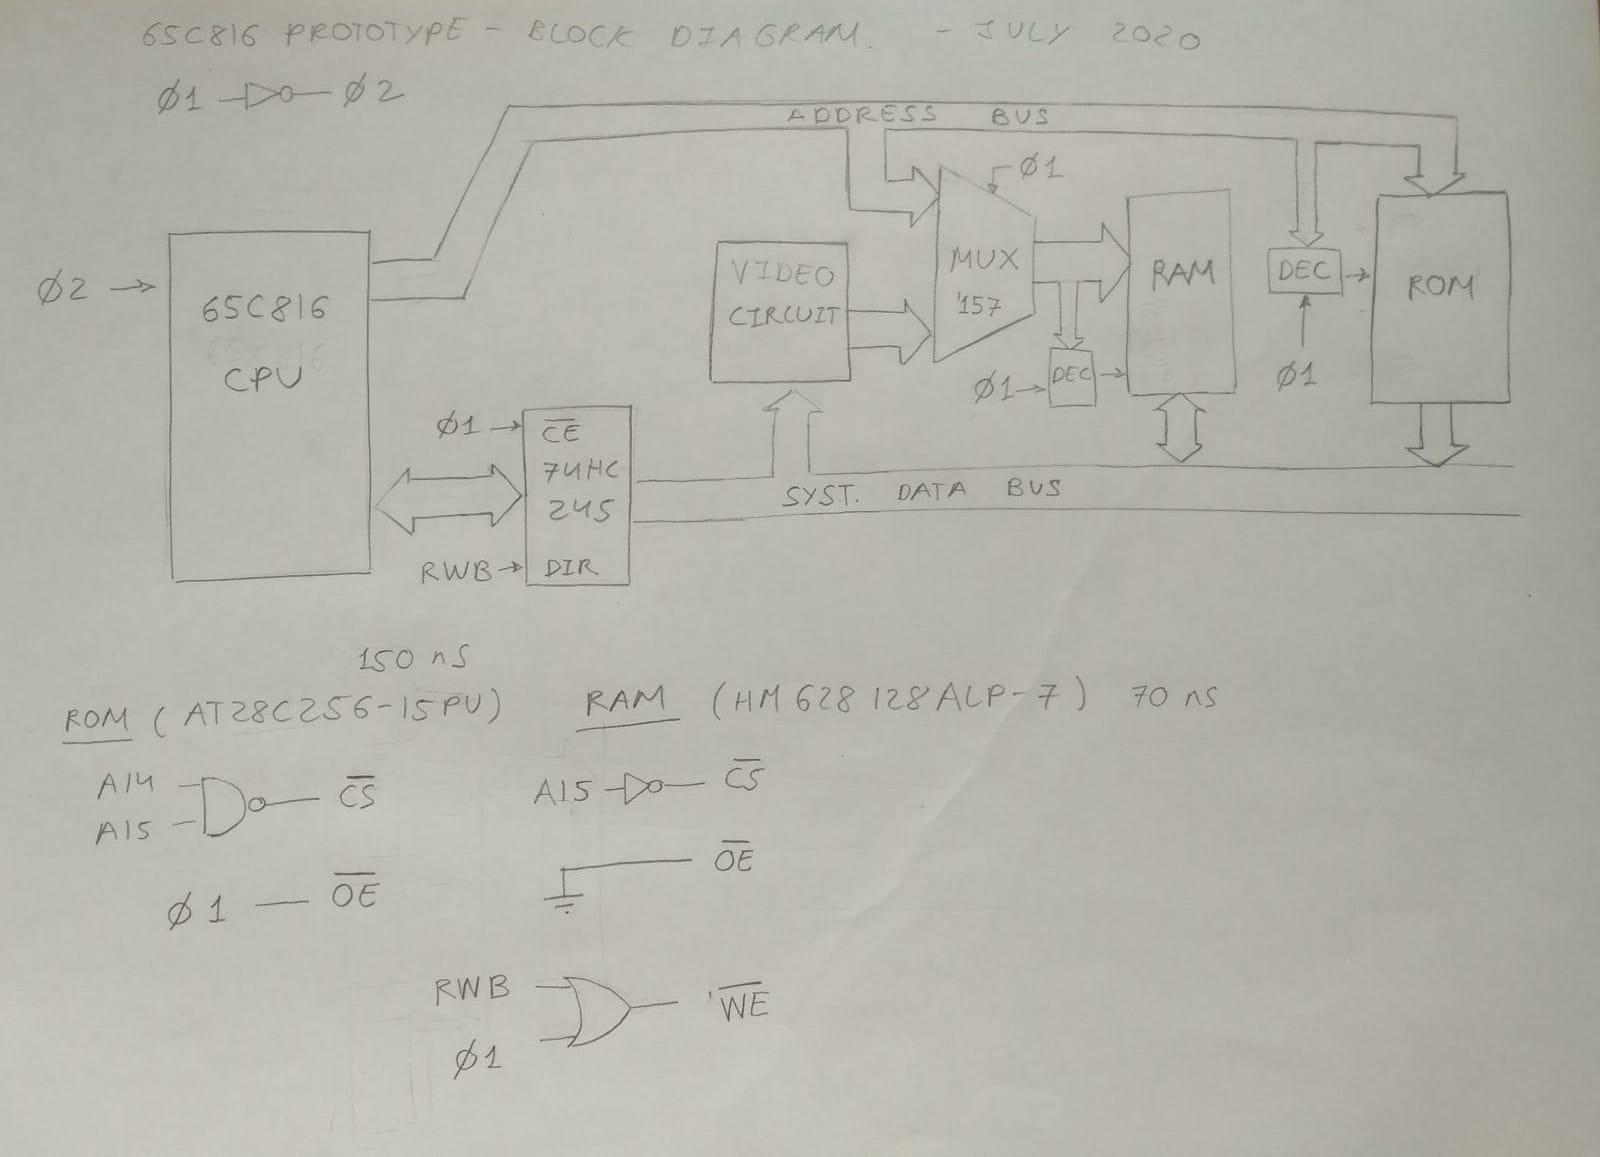 65C816 PROTOTYPE - BLOCK DIAGRAM. - JULY 2020
Ø1 Ø2
ADDRESS BUS
Ø1
Ø2
65C816
CPU
VIDEO
CIRCUIT
MUX
'157
RAM
DEC
ROM
Ø1
DEC
Ø1
Ø1
CE
74HC
245
RWB
DIR
SYST. DATA BUS
150 nS
ROM (AT28C256-15PU)
RAM (HM628128ALP-7) 70 nS
A14
A15
CS
Ø1 OE
A15 CS
OE
RWB
Ø1
WE